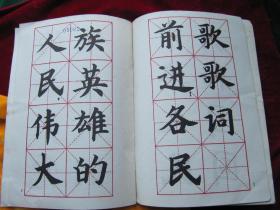 歌歌词
前进各民
族英雄的
人民伟大